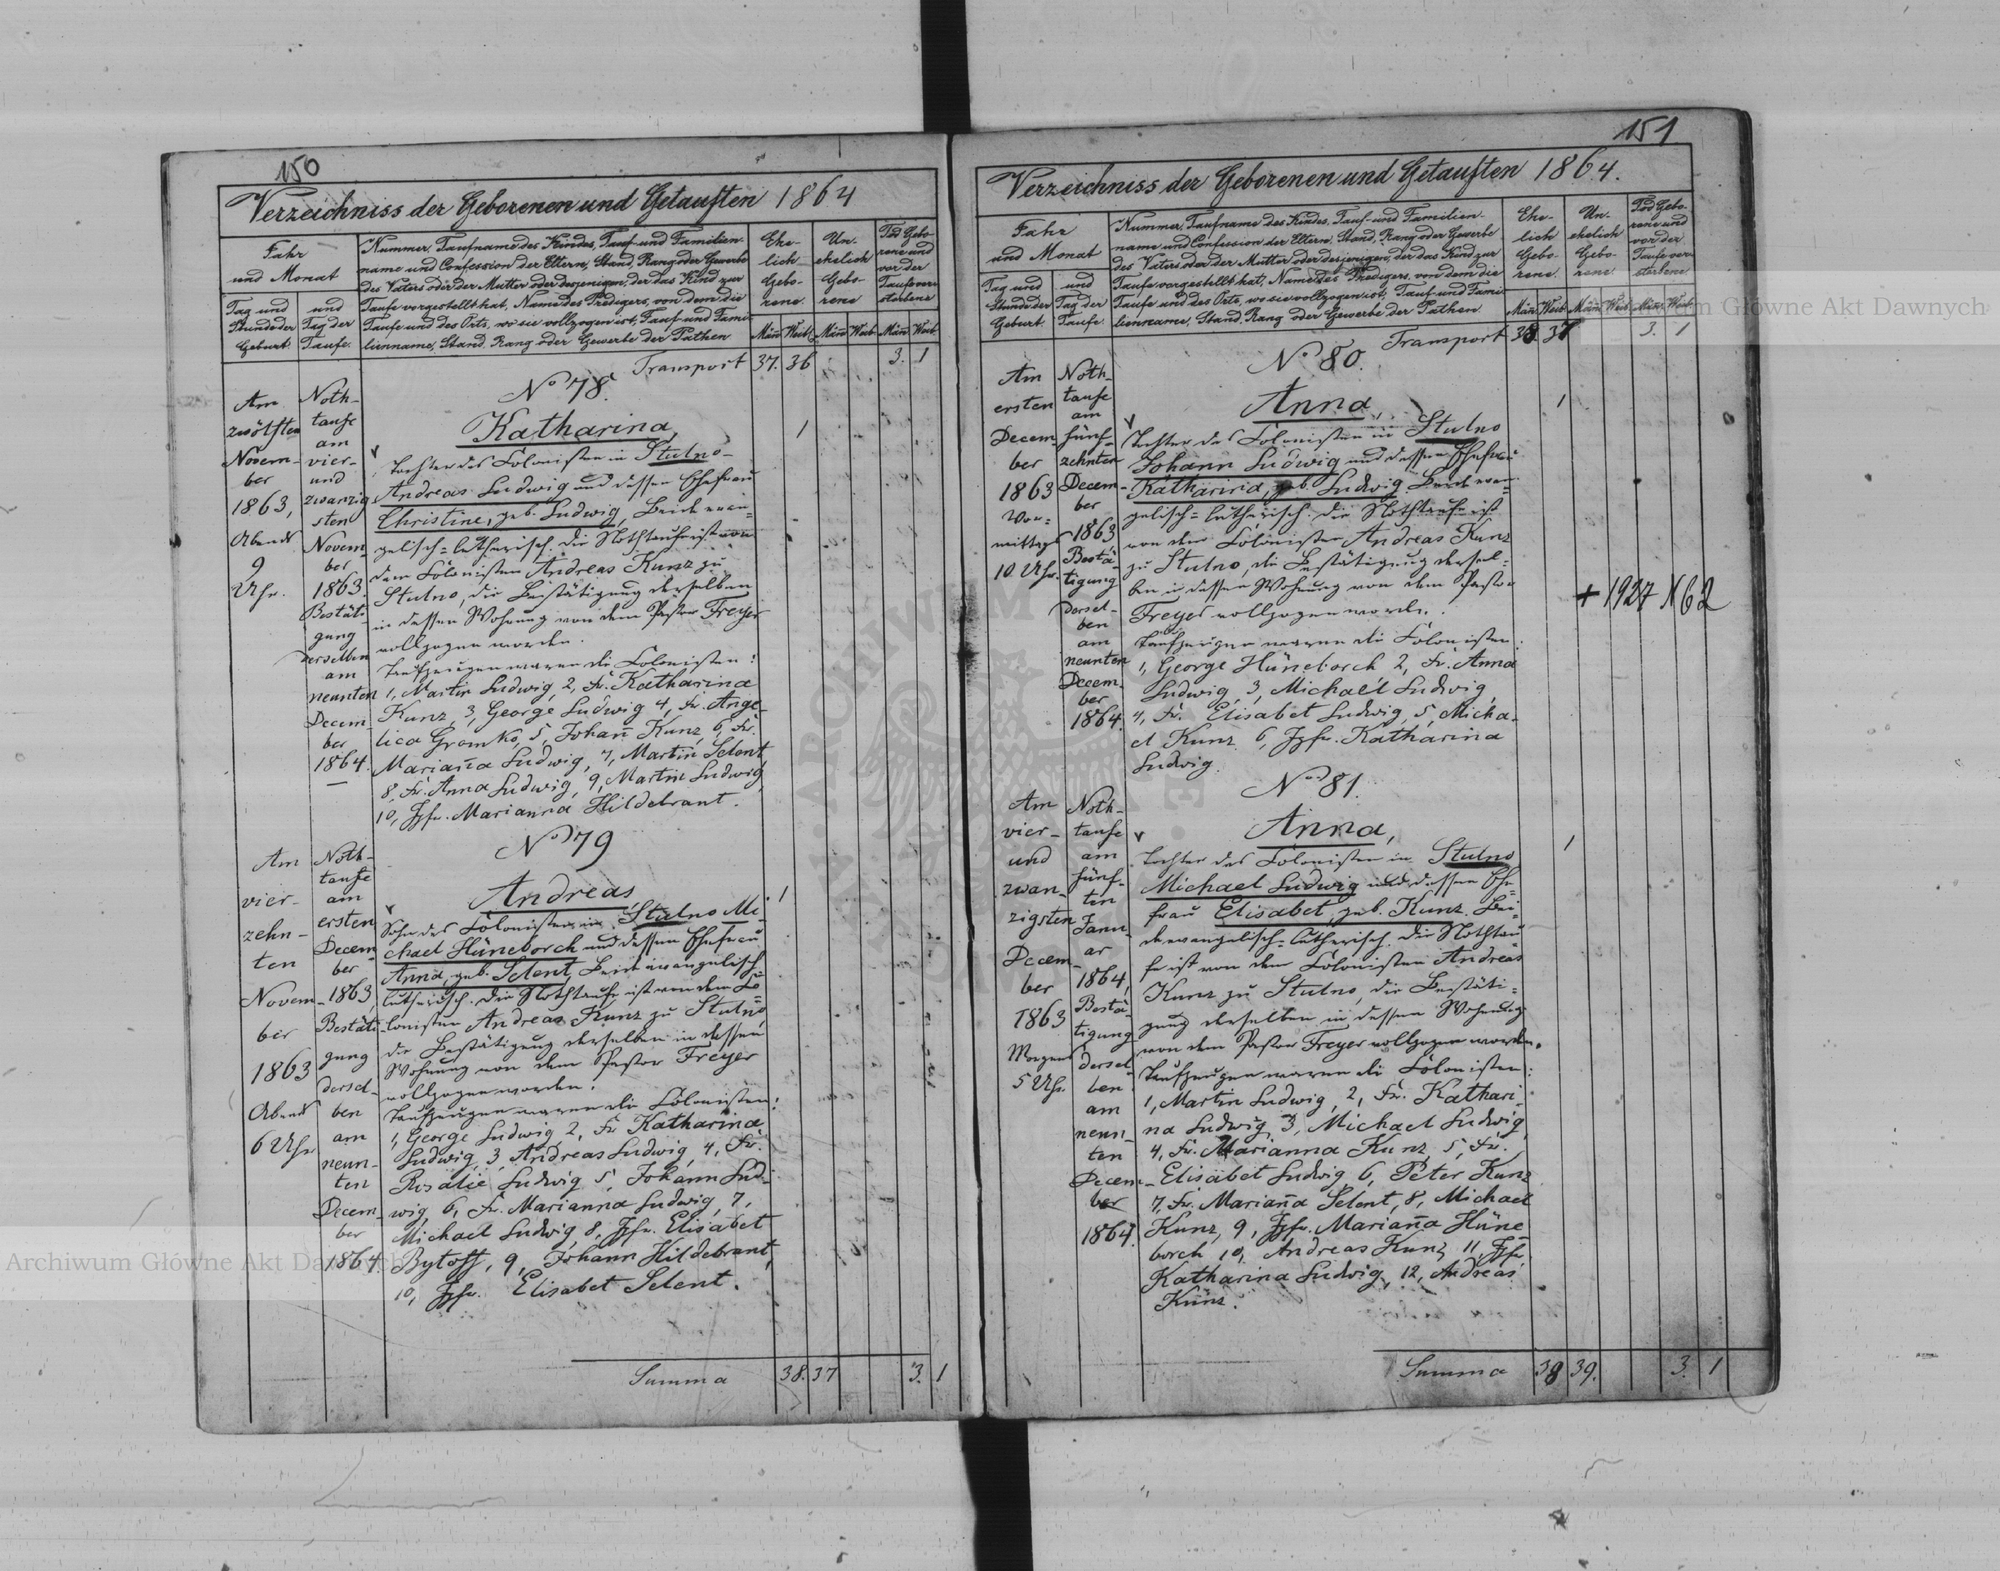 150
Verzeichniss der Geborenen und Getauften 1864
Jahr
und Monat
Tag und
Stunde der
Geburt.
und
Tag der
Taufe.
Nummer, Taufname des Kindes, Tauf- und Familien-
name und Confession der Eltern, Stand, Rang oder Gewerbe
des Vaters oder der Mutter oder desjenigen, der das Kind zur
Taufe vorgestellt hat, Name des Predigers, von dem die
Taufe und des Orts, wo sie vollzogen ist, Tauf- und Fami-
lienname, Stand, Rang oder Gewerbe der Pathen.
Ehe-
lich
Gebo-
rene.
Un-
ehelich
Gebo-
rene
Tod Gebo-
rene und
vor der
Taufe ver-
storbene
Män Weib Män Weib Män Weib
Transport 37. 36 3. 1
Am
zwölften
Novem-
ber
1863,
Abends
9
Uhr.
Noth-
taufe
am
vier-
und
zwanzig
sten
Novem-
ber
1863.
Bestäti-
gung
derselben
am
neunten
Decem-
ber
1864.
No 78.
Katharina, 1
Tochter des Colonisten in Stulno
Andreas Ludwig und dessen Ehefrau
Christine, geb. Ludwig, Beide evan-
gelisch-lutherisch. Die Nothtaufe ist von
dem Colonisten Andreas Kunz zu
Stulno, die Bestätigung derselben
in dessen Wohnung von dem Pastor Freyer
vollzogen worden.
Taufzeugen waren die Colonisten:
1, Martin Ludwig, 2, Fr. Katharina
Kunz, 3, George Ludwig 4, Fr. Ange-
lica Gromko, 5, Johan Kunz, 6, Fr.
Mariana Ludwig, 7, Martin Selent
8, Fr. Anna Ludwig, 9, Martin Ludwig,
10, Jgfr. Marianna Hildebrant.
Am
vier-
zehn-
ten
Novem-
ber
1863
Abends
6 Uhr
Noth-
taufe
am
ersten
Decem-
ber
1863,
Bestäti-
gung
dersel-
ben
am
neun-
ten
Decem-
ber
1864.
No 79
Andreas, 1
Sohn des Colonisten in Stulno Mi-
chael Hüneborch und dessen Ehefrau
Anna, geb. Selent, Beide evangelisch-
lutherisch. Die Nothtaufe ist von dem Co-
lonisten Andreas Kunz zu Stulno,
die Bestätigung derselben in dessen
Wohnung von dem Pastor Freyer
vollzogen worden.
Taufzeugen waren die Colonisten:
1, George Ludwig 2, Fr. Katharina
Ludwig, 3, Andreas Ludwig, 4, Fr.
Rosalie Ludwig 5, Johann Lud-
wig, 6, Fr. Marianna Ludwig, 7,
Michael Ludwig, 8, Jgfr. Elisabet
Bytoff, 9, Johann Hildebrant,
10, Jgfr. Elisabet Selent.
Summa 38. 37 3. 1
151
Verzeichniss der Geborenen und Getauften 1864.
Jahr
und Monat
Tag und
Stunde der
Geburt.
und
Tag der
Taufe.
Nummer, Taufname des Kindes, Tauf- und Familien-
name und Confession der Eltern, Stand, Rang oder Gewerbe
des Vaters oder der Mutter oder desjenigen, der das Kind zur
Taufe vorgestellt hat, Name des Predigers, von dem die
Taufe und des Orts, wo sie vollzogen ist, Tauf- und Fami-
lienname, Stand, Rang oder Gewerbe der Pathen.
Ehe-
lich
Gebo-
rene.
Un-
ehelich
Gebo-
rene
Tod Gebo-
rene und
vor der
Taufe ver-
storbene
Män Weib Män Weib Män Weib
Transport 38 37 3. 1
Am
ersten
Decem-
ber
1863
Vor-
mittags
10 Uhr.
Noth-
taufe
am
fünf-
zehnten
Decem-
ber
1863
Bestä-
tigung
dersel-
ben
am
neunten
Decem-
ber
1864.
No 80.
Anna, 1
Tochter des Colonisten in Stulno
Johann Ludwig und dessen Ehefrau
Katharina, geb. Ludwig. Beide evan-
gelisch-lutherisch. Die Nothtaufe ist
von dem Colonisten Andreas Kunz
zu Stulno, die Bestätigung dersel-
ben in dessen Wohnung von dem Pastor
Freyer vollzogen worden.
Taufzeugen waren die Colonisten:
1, George Hüneborch 2, Fr. Anna
Ludwig, 3, Michael Ludwig,
4, Fr. Elisabet Ludwig, 5, Micha-
el Kunz. 6, Jgfr. Katharina
Ludwig.
+ 1927 N 62
Am
vier-
und
zwan
zigsten
Decem-
ber
1863
Morgens
5 Uhr.
Noth-
taufe
am
fünf-
ten
Janu-
ar
1864,
Bestä-
tigung
dersel-
ben
am
neun-
ten
Decem-
ber
1864.
No 81.
Anna, 1
Tochter des Colonisten in Stulno
Michael Ludwig und dessen Ehe-
frau Elisabet, geb. Kunz. Bei-
de evangelisch-lutherisch. Die Nothtau-
fe ist von dem Colonisten Andreas
Kunz zu Stulno, die Bestäti-
gung derselben in dessen Wohnung
von dem Pastor Freyer vollzogen worden.
Taufzeugen waren die Colonisten:
1, Martin Ludwig, 2, Fr. Kathari-
na Ludwig, 3, Michael Ludwig,
4, Fr. Marianna Kunz, 5, Fr.
Elisabet Ludwig, 6, Peter Kunz
7, Fr. Mariana Selent, 8, Michael
Kunz, 9, Jgfr. Mariana Hüne-
borch 10, Andreas Kunz, 11, Jgfr.
Katharina Ludwig, 12, Andreas
Kunz.
Summa 38 39. 3. 1
Archiwum Główne Akt Dawnych